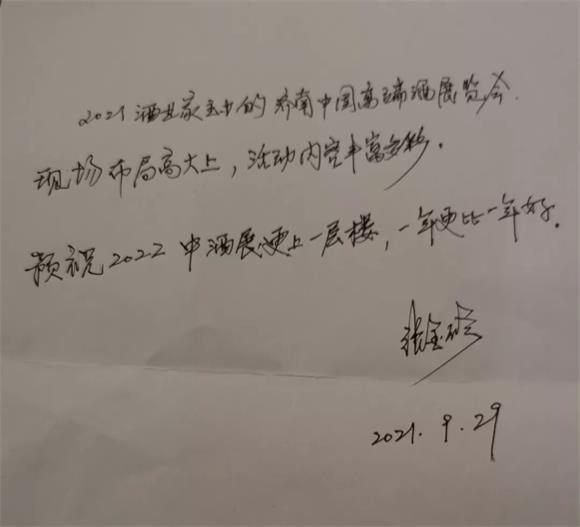 2021酒业家主办的济南中国高端酒展览会.
现场布局高大上，活动内容丰富多彩.
预祝2022中酒展更上一层楼，一年更比一年好.
张金
2021.9.29